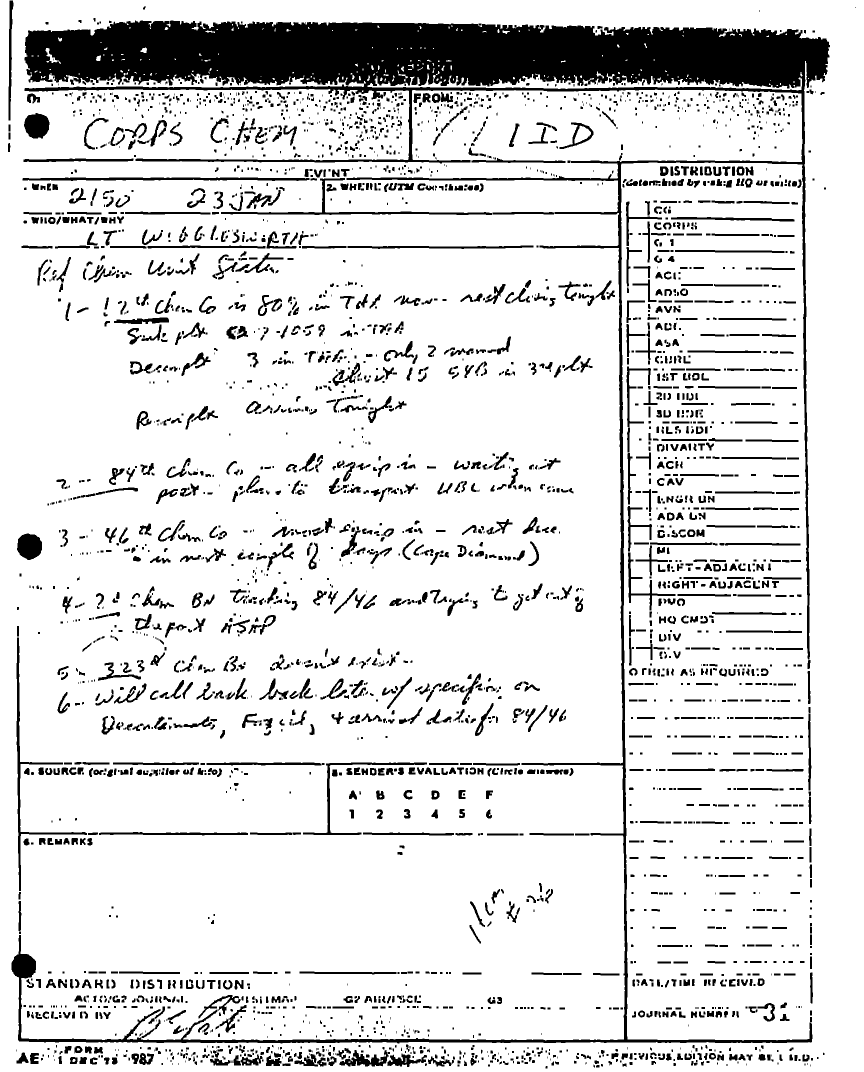 REPORT
TO:
FROM:
CORPS CHEM
1 ID
EVENT
DISTRIBUTION
(determined by using HQ or units)
1. WHEN
2150 23 JAN
2. WHERE (UTM Coordinates)
3. WHO/WHAT/WHY
LT WIGGLESWORTH
Ref Chem Unit Status
1 - 12th Chem Co is 80% in TAA now - rest closing tonight
plt 1059 in TAA
3 in TAA - only 2 manned
about 15 54B in 3rd plt
Recon plt arrives Tonight
2 - 84th Chem Co - all equip in - waiting at
port - plans to transport UBL when came
3 - 46th Chem Co - most equip in - rest due
in next couple of days (Cape Diamond)
4 - 2d Chem Bn tracking 84/46 and trying to get out of
the port ASAP
5 - 323d Chem Bn doesn't exist -
6 - Will call back back later w/ specifics on
& arrival dates for 84/46
CG
CORPS
G 1
G 4
ACE
ADSO
AVN
ASA
1ST BDE
2D BDE
3D BDE
RES BDE
DIVARTY
ACR
CAV
ENGR BN
ADA BN
DISCOM
MI
LEFT-ADJACENT
RIGHT-ADJACENT
PMO
HQ CMDT
DIV
DIV
OTHER AS REQUIRED
4. SOURCE (original supplier of info)
5. SENDER'S EVALUATION (Circle answers)
A B C D E F
1 2 3 4 5 6
6. REMARKS
STANDARD DISTRIBUTION:
G2 JOURNAL G2 SITMAP G2 AIR/FSCE G3
RECEIVED BY
DATE/TIME RECEIVED
JOURNAL NUMBER 31
AE FORM 1 DEC 78 987
PREVIOUS EDITION MAY BE USED.